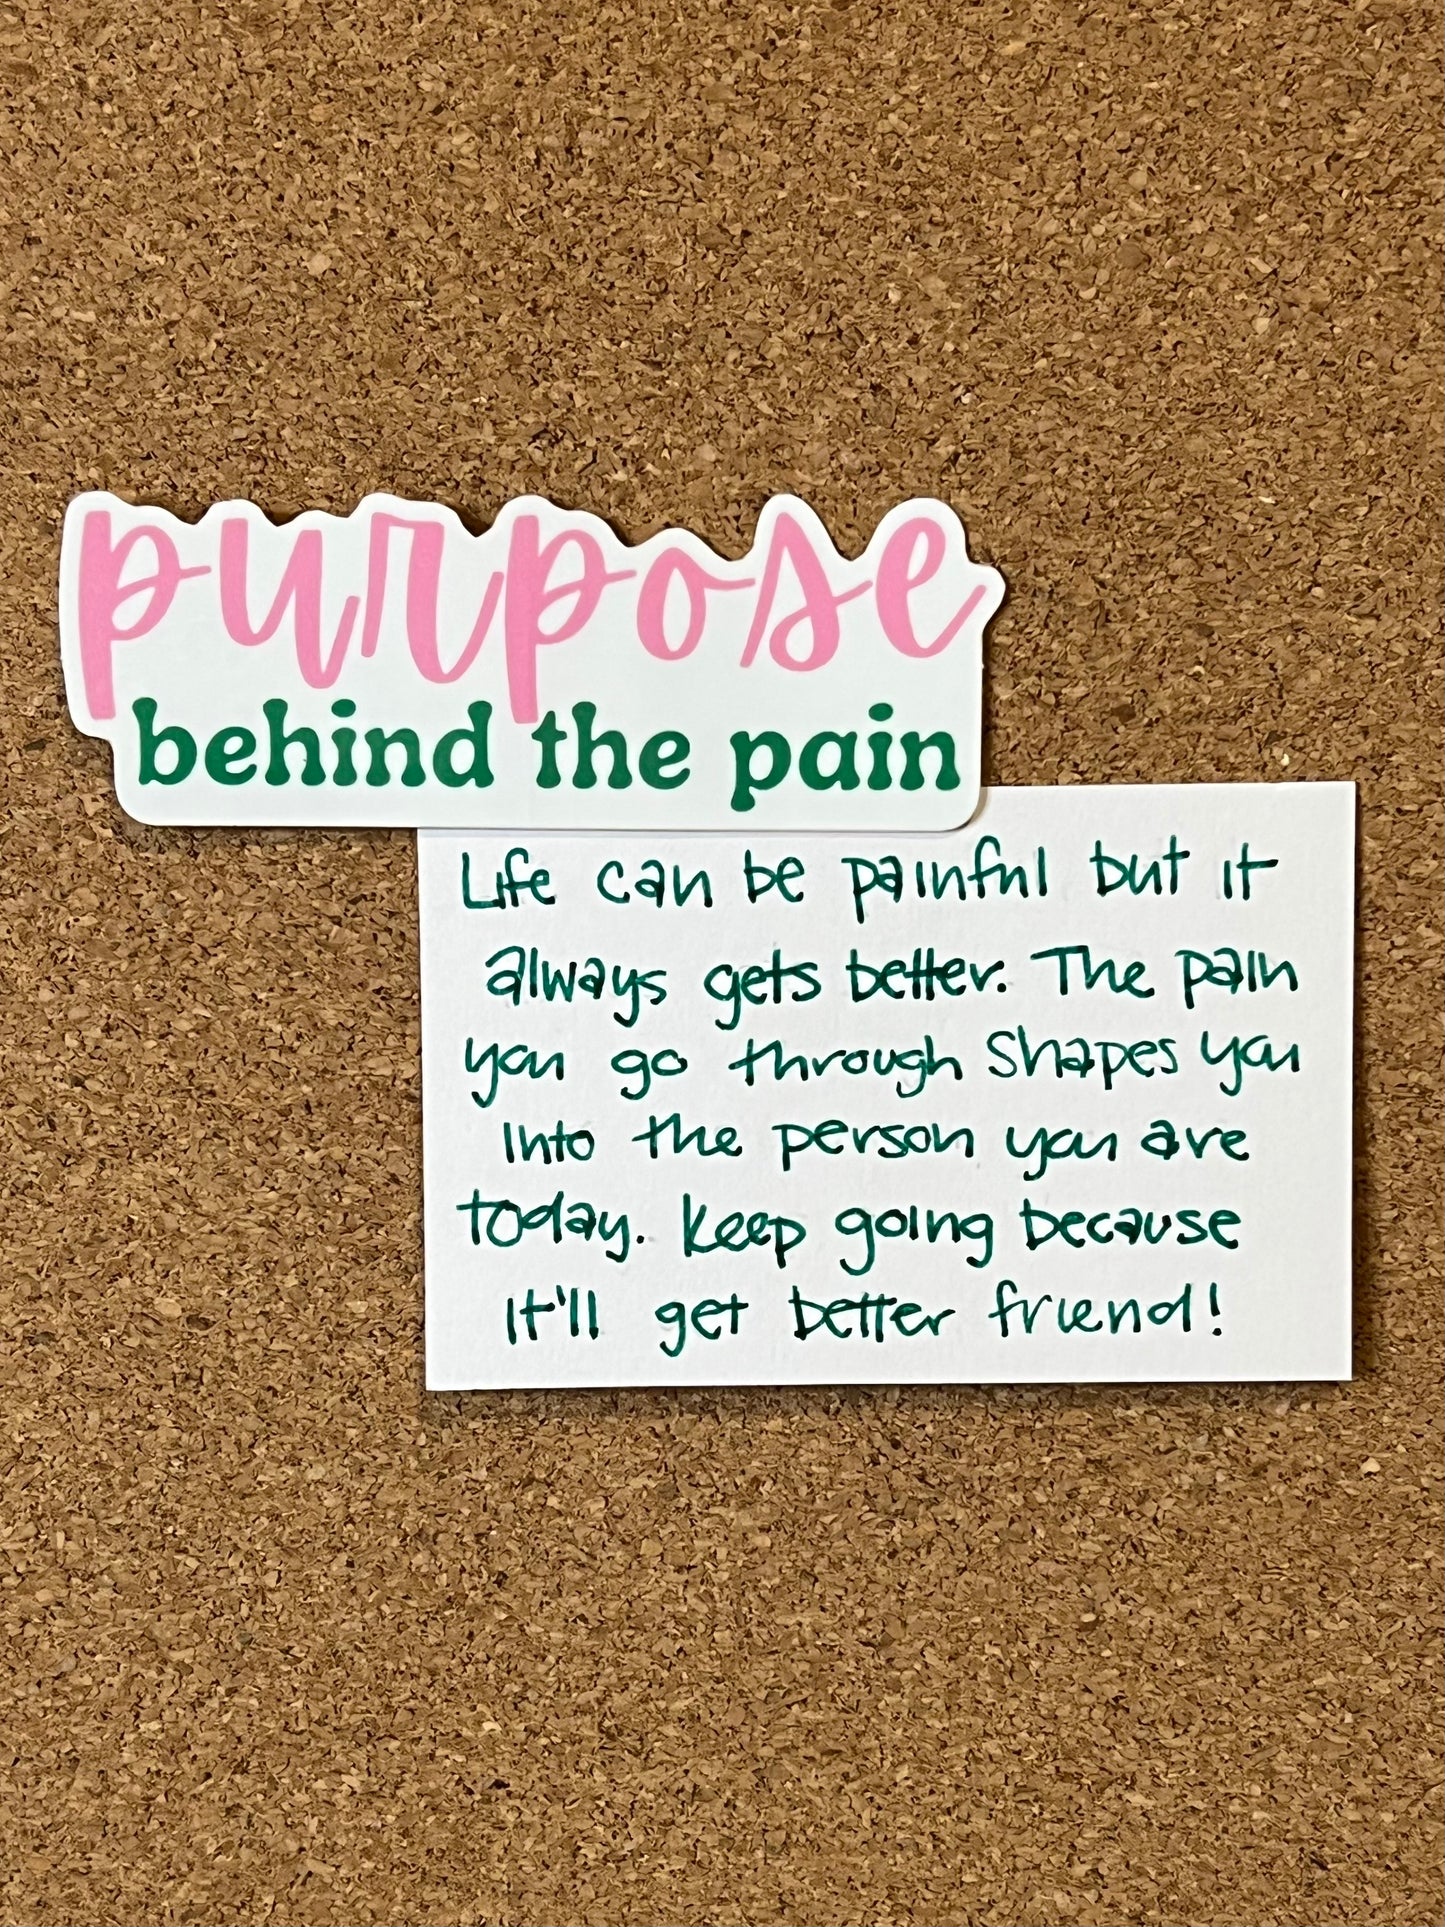 purpose
behind the pain
Life can be painful but it
always gets better. The pain
you go through shapes you
into the person you are
today. Keep going because
it'll get better friend!